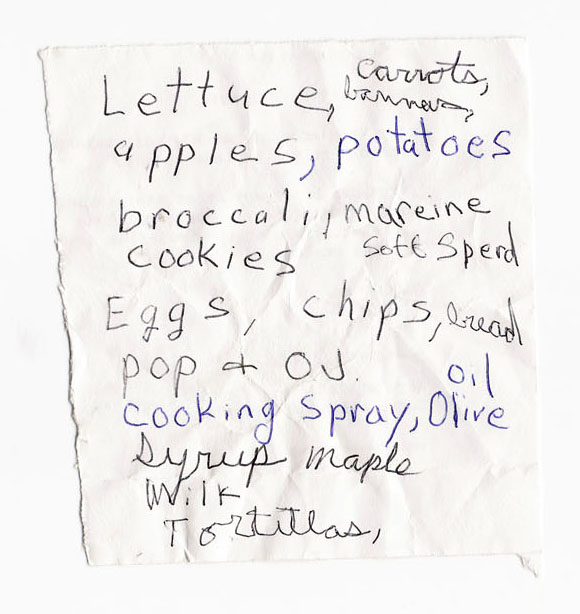 carrots,
Lettuce, bannas,
apples, potatoes
broccali, mareine
cookies soft Sperd
Eggs, chips, bread
pop + OJ. oil
cooking spray, Olive
Syrup maple
Milk
Tortillas,